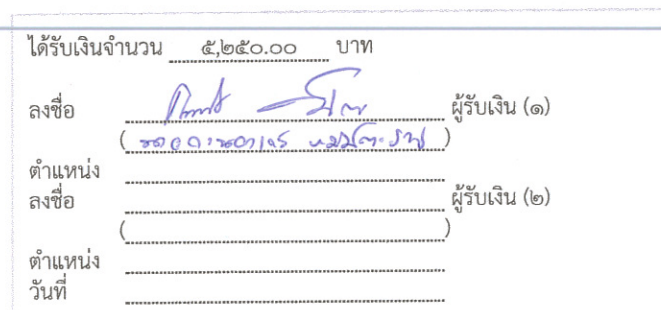 ได้รับเงินจำนวน ๕,๒๕๐.๐๐ บาท
ลงชื่อ ผู้รับเงิน (๑)
( )
ตำแหน่ง
ลงชื่อ ผู้รับเงิน (๒)
( )
ตำแหน่ง
วันที่